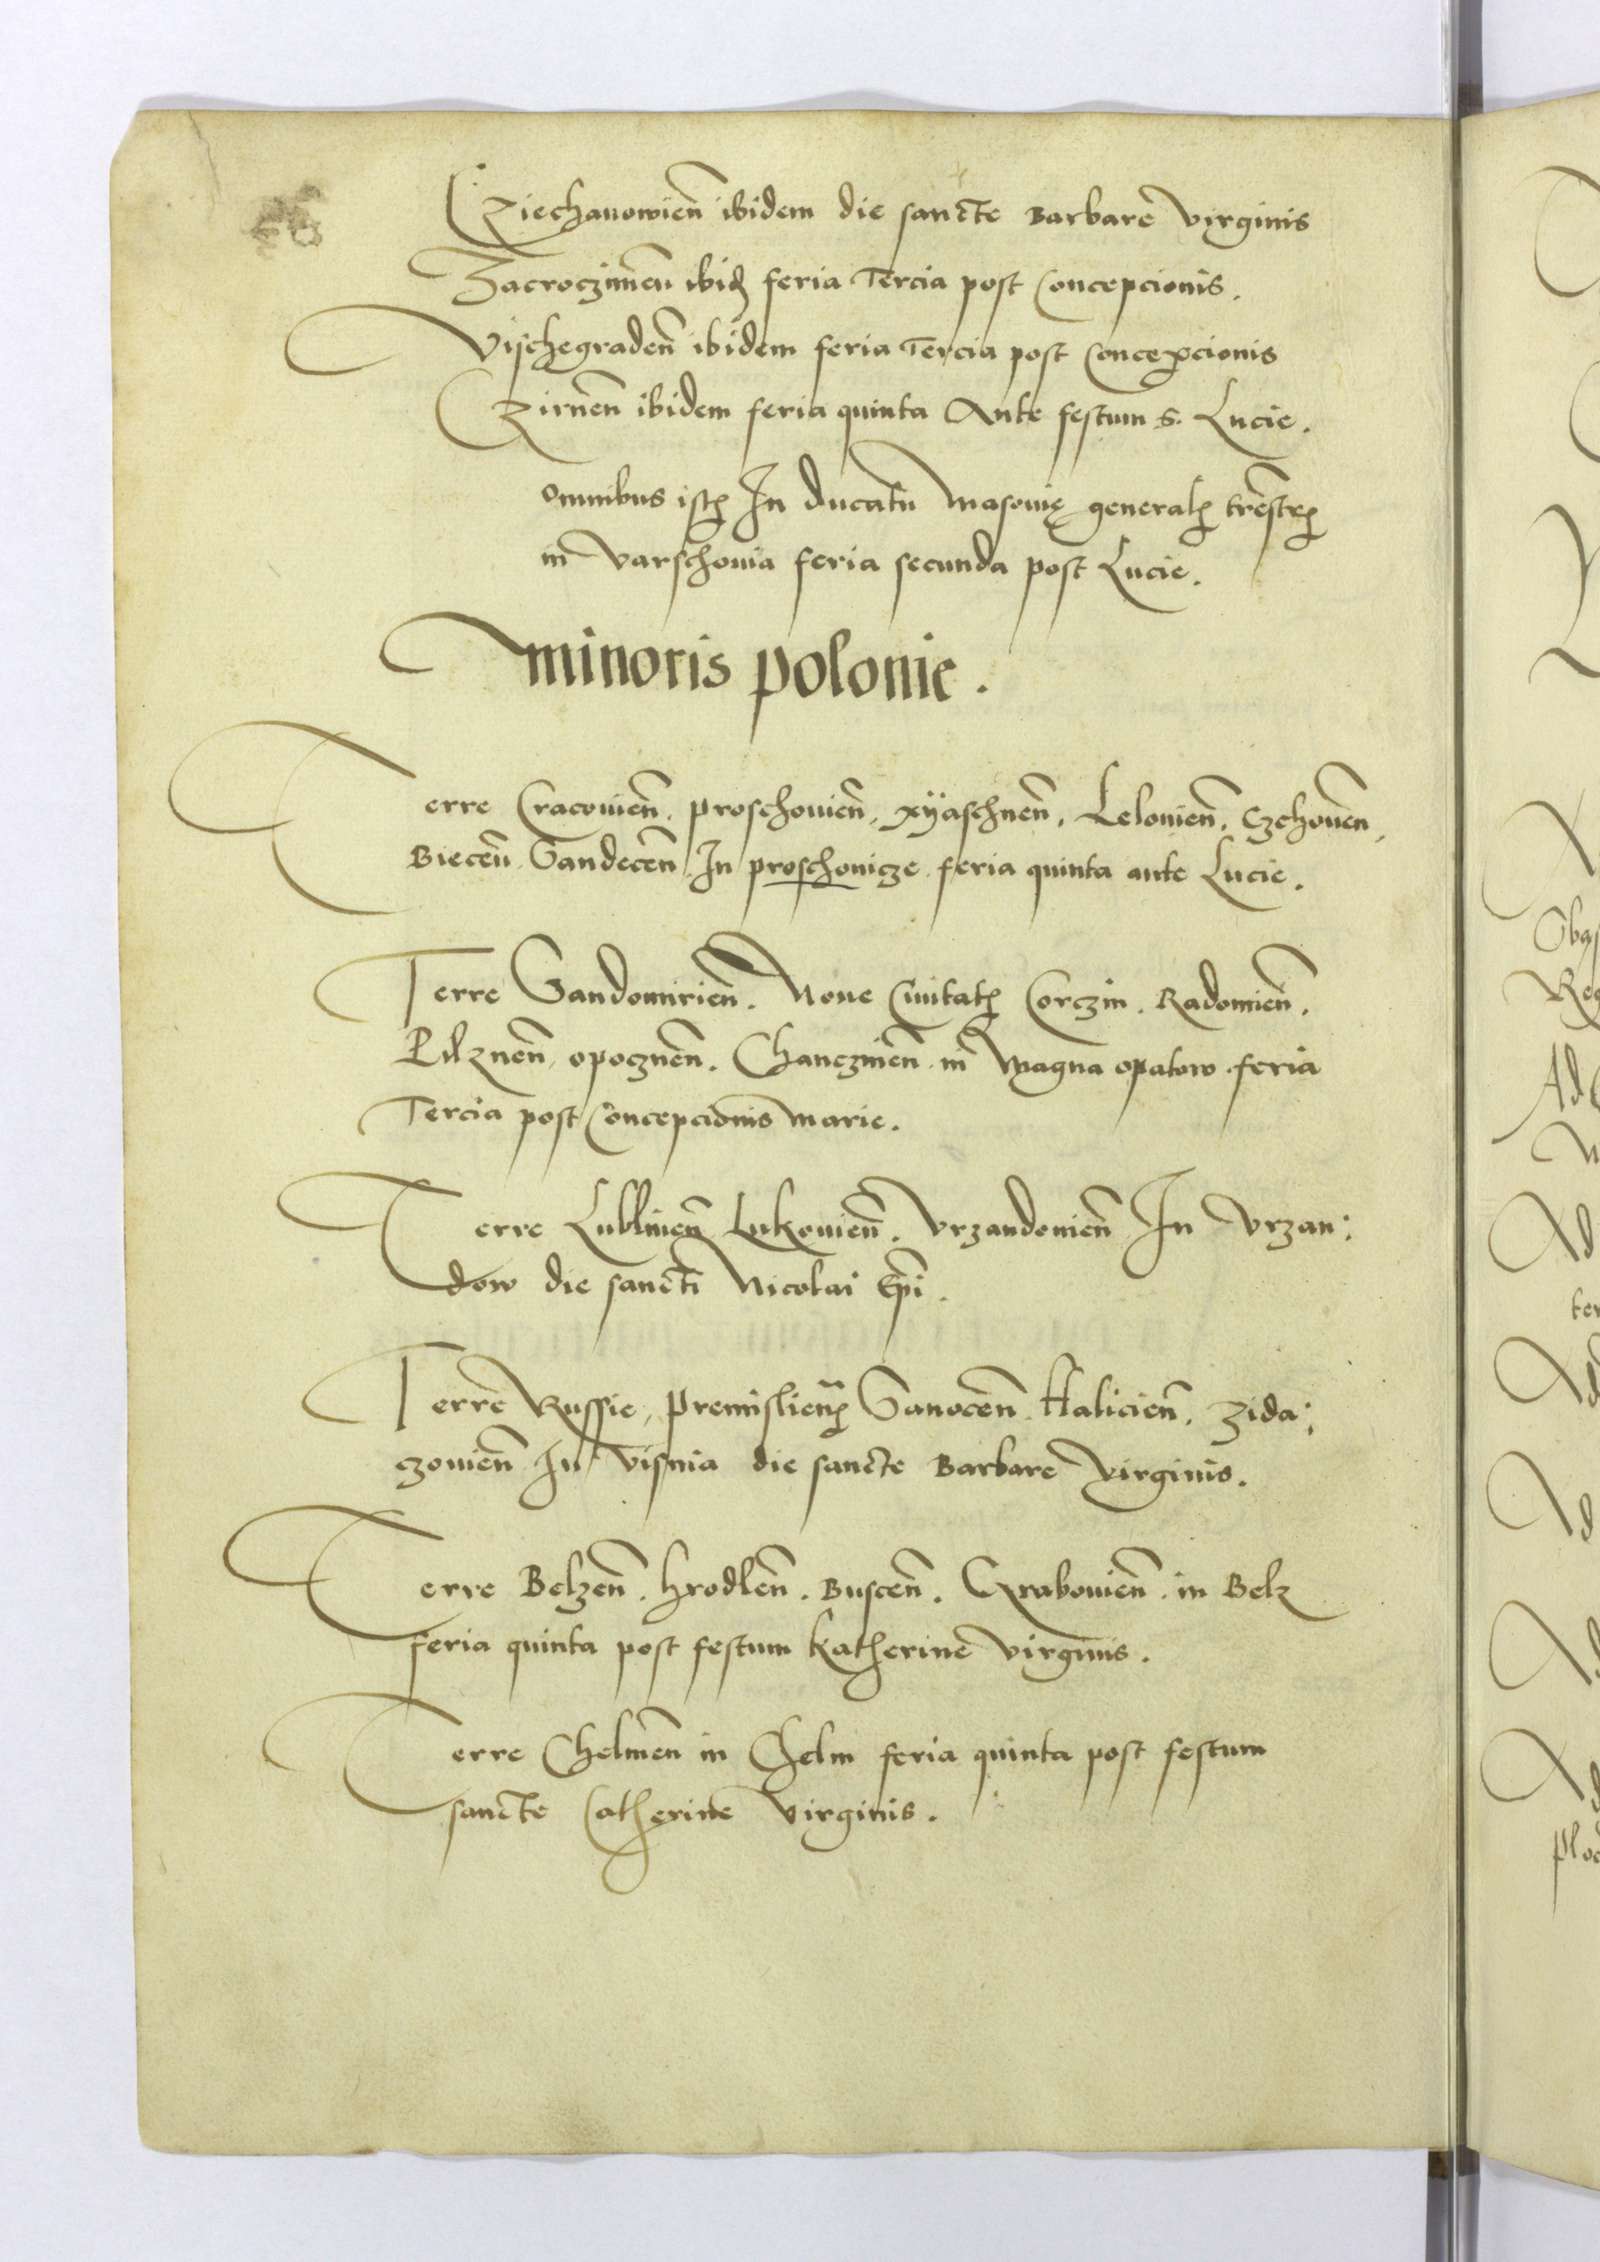 Cziechanowien̄ ibidem die sancte Barbare virginis
Zacrocziimen̄ ibid feria Tercia post Concepcionis.
Vischegraden̄ ibidem feria Tercia post Concepcionis
Czirnen̄ ibidem feria quinta Ante festum s. Lucie.
omnibus istꝭ In ducatu Masovię generalꝭ trēstrꝭ
in Varschovia feria secunda post Lucie.
minoris polonie.
Terre Cracovien̄, proschovien̄, xÿaschnen̄, Lelovien̄, Czchoven̄,
Biecen̄ Sandecen̄ In proschovicze feria quinta ante Lucie.
Terre Sandomirien̄. Noue Civitatꝭ Corczin. Radomien̄.
Pilznen̄, opocznen̄. Chanczinen̄ in Magna opatow feria
Tercia post Concepcionis Marie.
Terre Lublinen̄ Lukovien̄. Vrzandovien̄ In Vrzan:
dow die sancti Nicolai Ep̄i.
Terre Russie, premislien̄ꝭ Sanocen̄ Halicien̄. Zida:
czovien̄ In Visnia die sancte Barbare Virginis.
Terre Belzen̄. hrodlen̄. Buscen̄. Grabovien̄. in Belz
feria quinta post festum Katherine Virginis.
Terre Chelmen̄ in Chelm feria quinta post festum
sancte Catherine Virginis.
Obas
Reg
Ad
Ad
ter
Ad
Ad
Ad
Ad
Plo